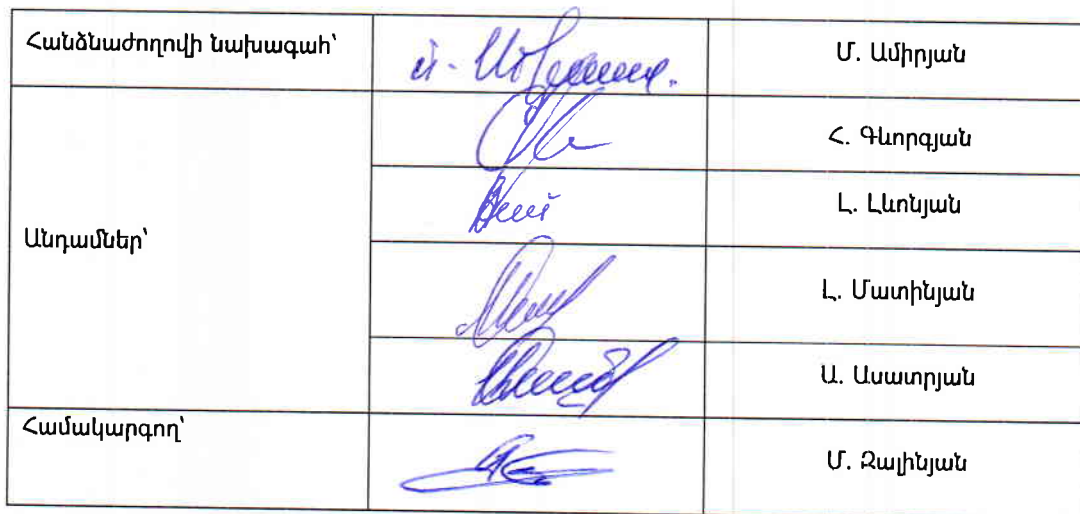 Հանձնաժողովի նախագահ՝
Մ. Ամիրյան
Անդամներ՝
Հ. Գևորգյան
Լ. Լևոնյան
Լ. Մատինյան
Ա. Ասատրյան
Համակարգող՝
Մ. Զալինյան